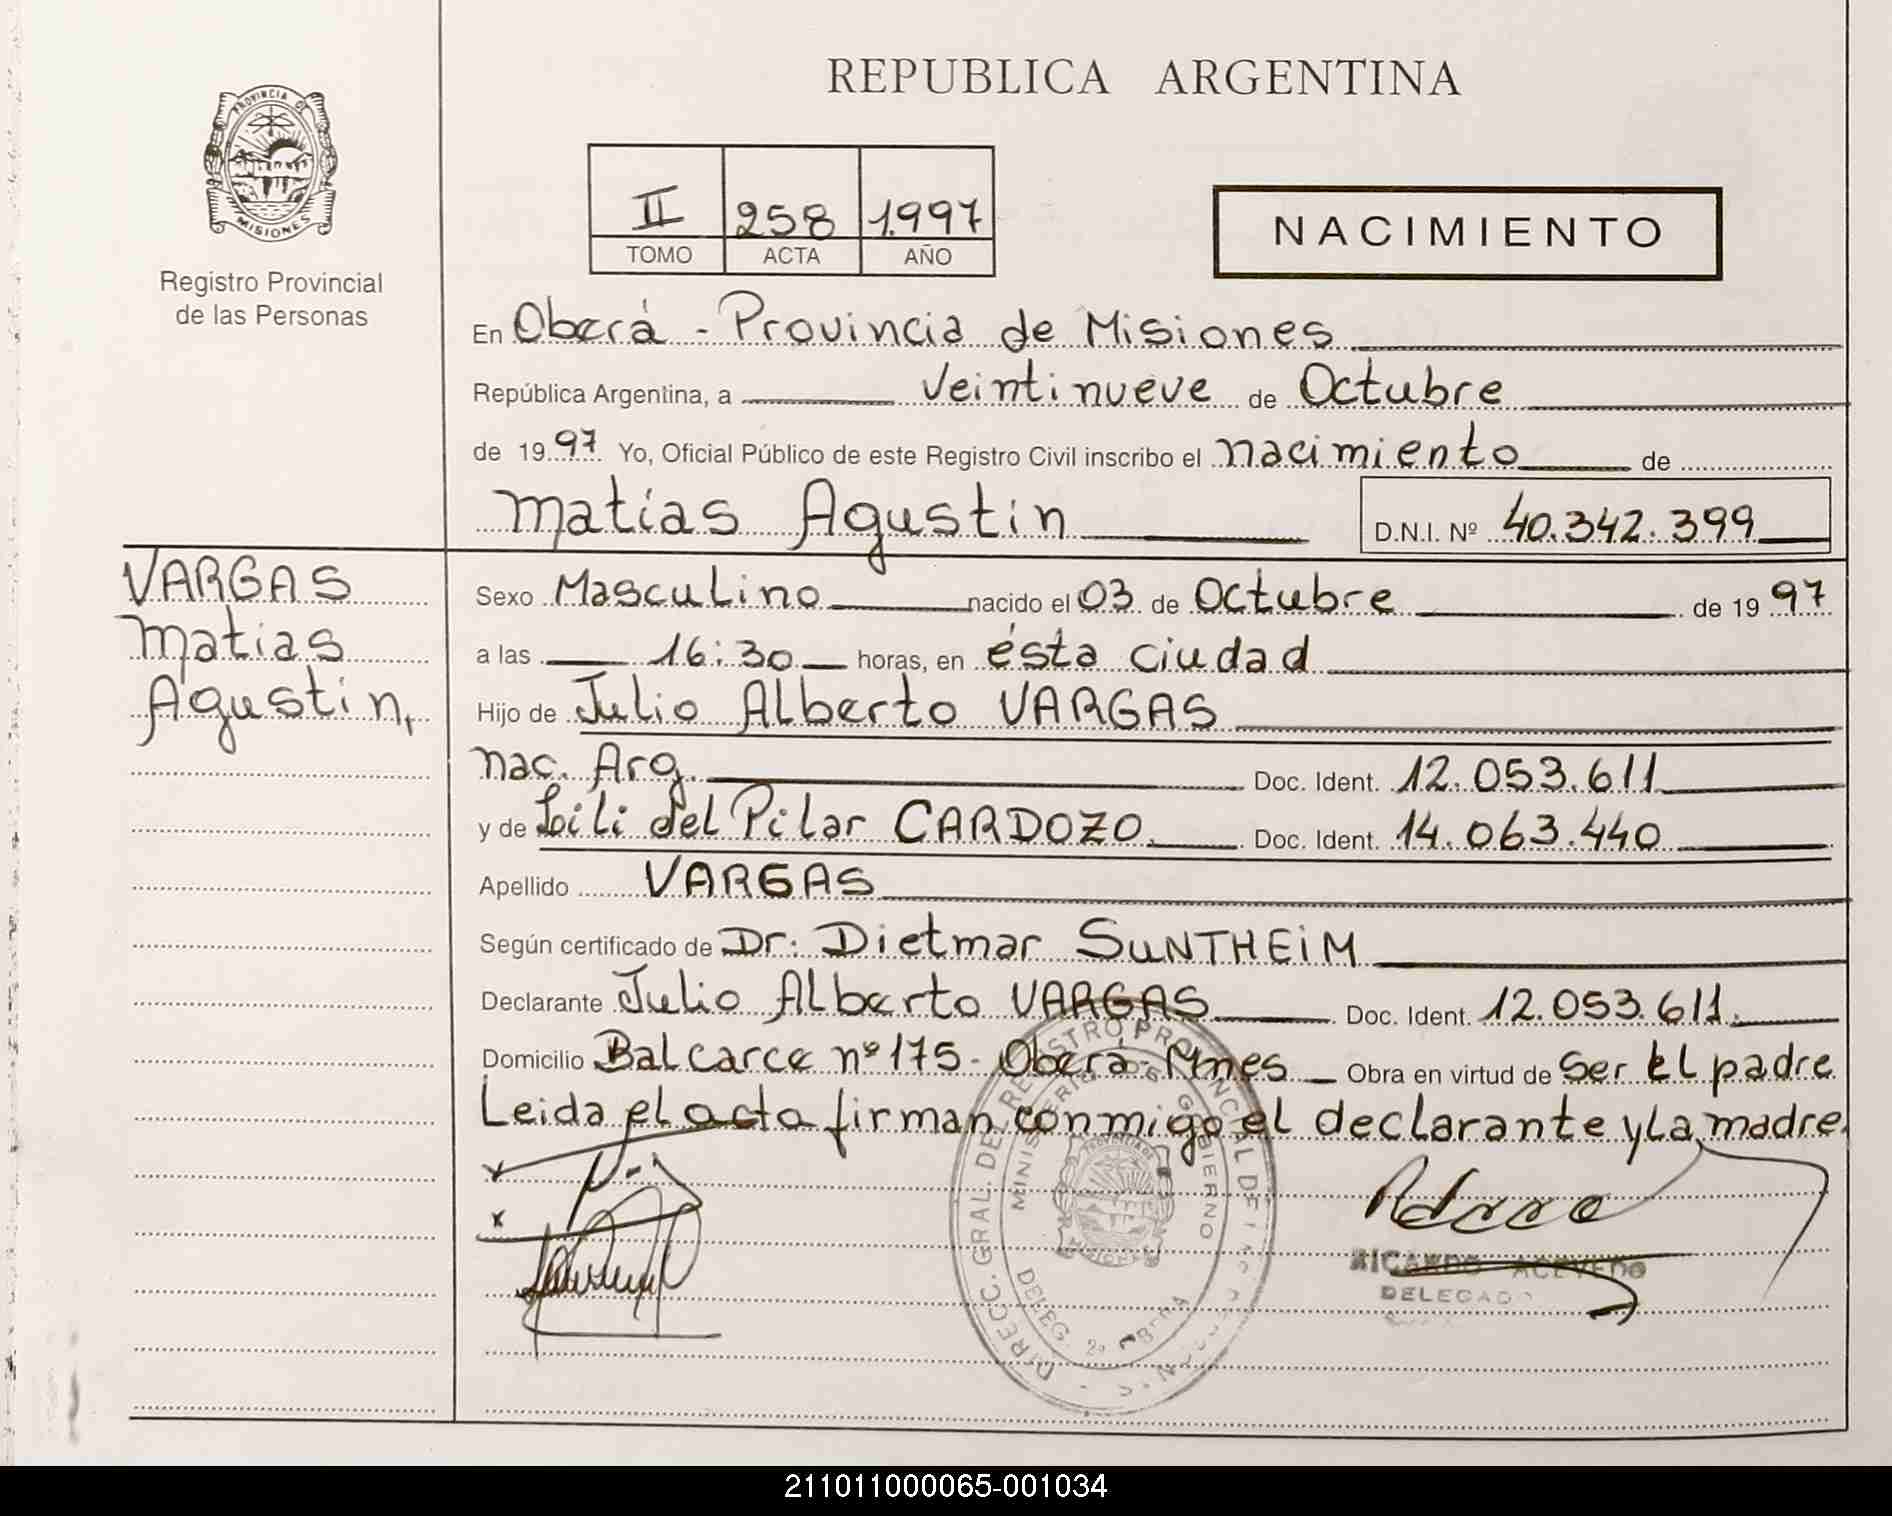 REPUBLICA ARGENTINA
PROVINCIA DE
MISIONES
Registro Provincial
de las Personas
II 258 1.997
TOMO ACTA AÑO
NACIMIENTO
En Oberá - Provincia de Misiones
República Argentina, a veintinueve de Octubre
de 1997 Yo, Oficial Público de este Registro Civil inscribo el nacimiento de
Matías Agustin D.N.I. Nº 40.342.399
VARGAS
Matias
Agustin,
Sexo Masculino nacido el 03 de Octubre de 1997
a las 16:30 horas, en ésta ciudad
Hijo de Julio Alberto VARGAS
nac. Arg. Doc. Ident. 12.053.611
y de Lili del Pilar CARDOZO Doc. Ident. 14.063.440
Apellido VARGAS
Según certificado de Dr: Dietmar SUNTHEiM
Declarante Julio Alberto VARGAS Doc. Ident. 12.053.611.
Domicilio Balcarce nº 175 - Oberá - Mnes Obra en virtud de ser el padre
Leida el acta firman conmigo el declarante y la madre.
DIRECC. GRAL. DEL REGISTRO PROVINCIAL DE
MINISTERIO DE GOBIERNO
MISIONES
DELEG. 2ª OBERA
RICARDO ACEVEDO
DELEGADO
211011000065-001034